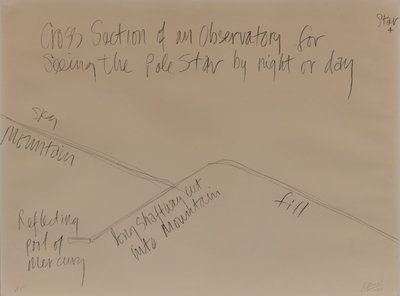 Cross Section of an Observatory for
Seeing the Pole Star by night or day
Star
Sky
Mountain
long shaftway cut
into Mountain
fill
Reflecting
pool of
Mercury